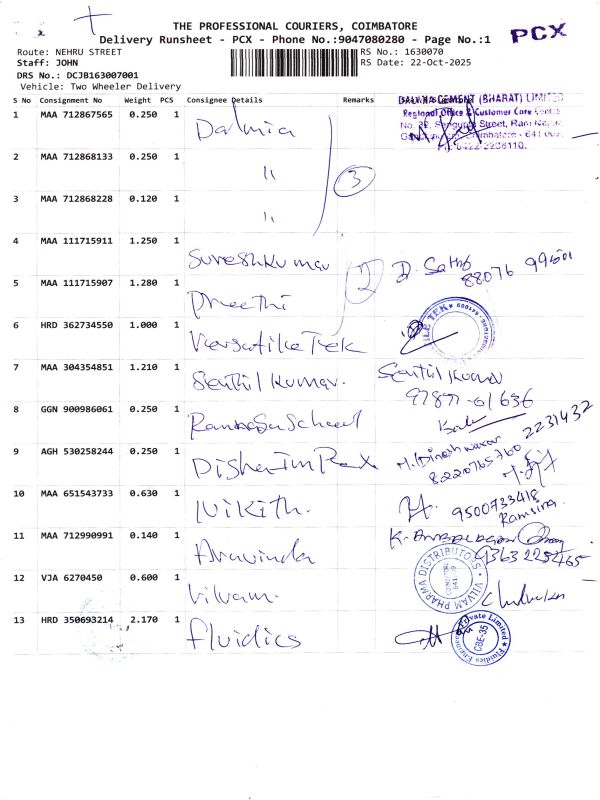 THE PROFESSIONAL COURIERS, COIMBATORE
PCX
Delivery Runsheet - PCX - Phone No.:9047080280 - Page No.:1
Route: NEHRU STREET
RS No.: 1630070
Staff: JOHN
RS Date: 22-Oct-2025
DRS No.: DCJB163007001
Vehicle: Two Wheeler Delivery
S No Consignment No Weight PCS Consignee Details Remarks
DALMIA CEMENT (BHARAT) LIMITED
Regional Office & Customer Care
Street, Ram Nagar
1 MAA 712867565 0.250 1 Dalmia
2 MAA 712868133 0.250 1 "
3
3 MAA 712868228 0.120 1 "
4 MAA 111715911 1.250 1 Sureshkumar
2
88076 99501
5 MAA 111715907 1.280 1 Preethi
6 HRD 362734550 1.000 1 VersatileTek
7 MAA 304354851 1.210 1 Senthil Kumar.
Senthil Kumar
97877-61636
8 GGN 900986061 0.250 1
2231432
9 AGH 530258244 0.250 1
M. Dineshwaran
8220765760
10 MAA 651543733 0.630 1 Nikith.
9500733418
Ramsina.
11 MAA 712990991 0.140 1 Aravinda
9363225465
12 VJA 6270450 0.600 1 Vilvam.
VILVAM PHARMA DISTRIBUTORS
13 HRD 350693214 2.170 1 fluidics
Private Limited
CBE-35